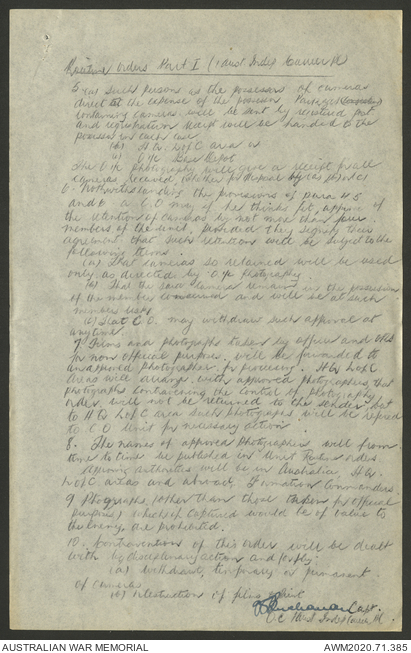 Routine Orders Part I (1 Aust Indep Carrier Pl)
5 (a) Such persons as the possessors of cameras
direct at the expense of the possessor. Packages
containing cameras will be sent by registered post
and registration receipt will be handed to the
possessor in each case
(b) H.Q. LofC area or
(c) O/c Base Depot
The O/c photography will give a receipt for all
cameras received.
6. Notwithstanding the provisions of para 4 5
and a C.O. may if he thinks fit, approve of
the retention of cameras by not more than four
members of the unit, provided they signify their
agreement that such retentions will be subject to the
following terms
(a) That cameras so retained will be used
only as directed by O/c photography.
(b) That the said camera remains in the possession
of the member concerned and will be at such
members risk
(c) That C.O. may withdraw such approval at
anytime.
7 Films and photographs taken by officers and ORs
for non official purposes will be forwarded to
an approved photographer for processing. HQ LofC
Areas will arrange with approved photographers that
photographs contravening the control of photography
order will not be returned to the sender but
to HQ LofC area such photographs will be referred
to C.O Unit for necessary action.
8. The names of approved photographers will from
time to time be published in Unit orders
Approving authorities will be in Australia HQ
LofC areas and abroad, Formation Commanders.
9 Photographs, (other than those taken for official
purposes) which if captured would be of value to
the Enemy, are prohibited.
10. Contraventions of this order will be dealt
with by disciplinary action and/or by:-
(a) withdrawal, temporary or permanent
of cameras
(b) destruction of film or print
Buchanan Capt.
O.C. 1 Aust Indep Carrier Pl.
AUSTRALIAN WAR MEMORIAL
AWM2020.71.385